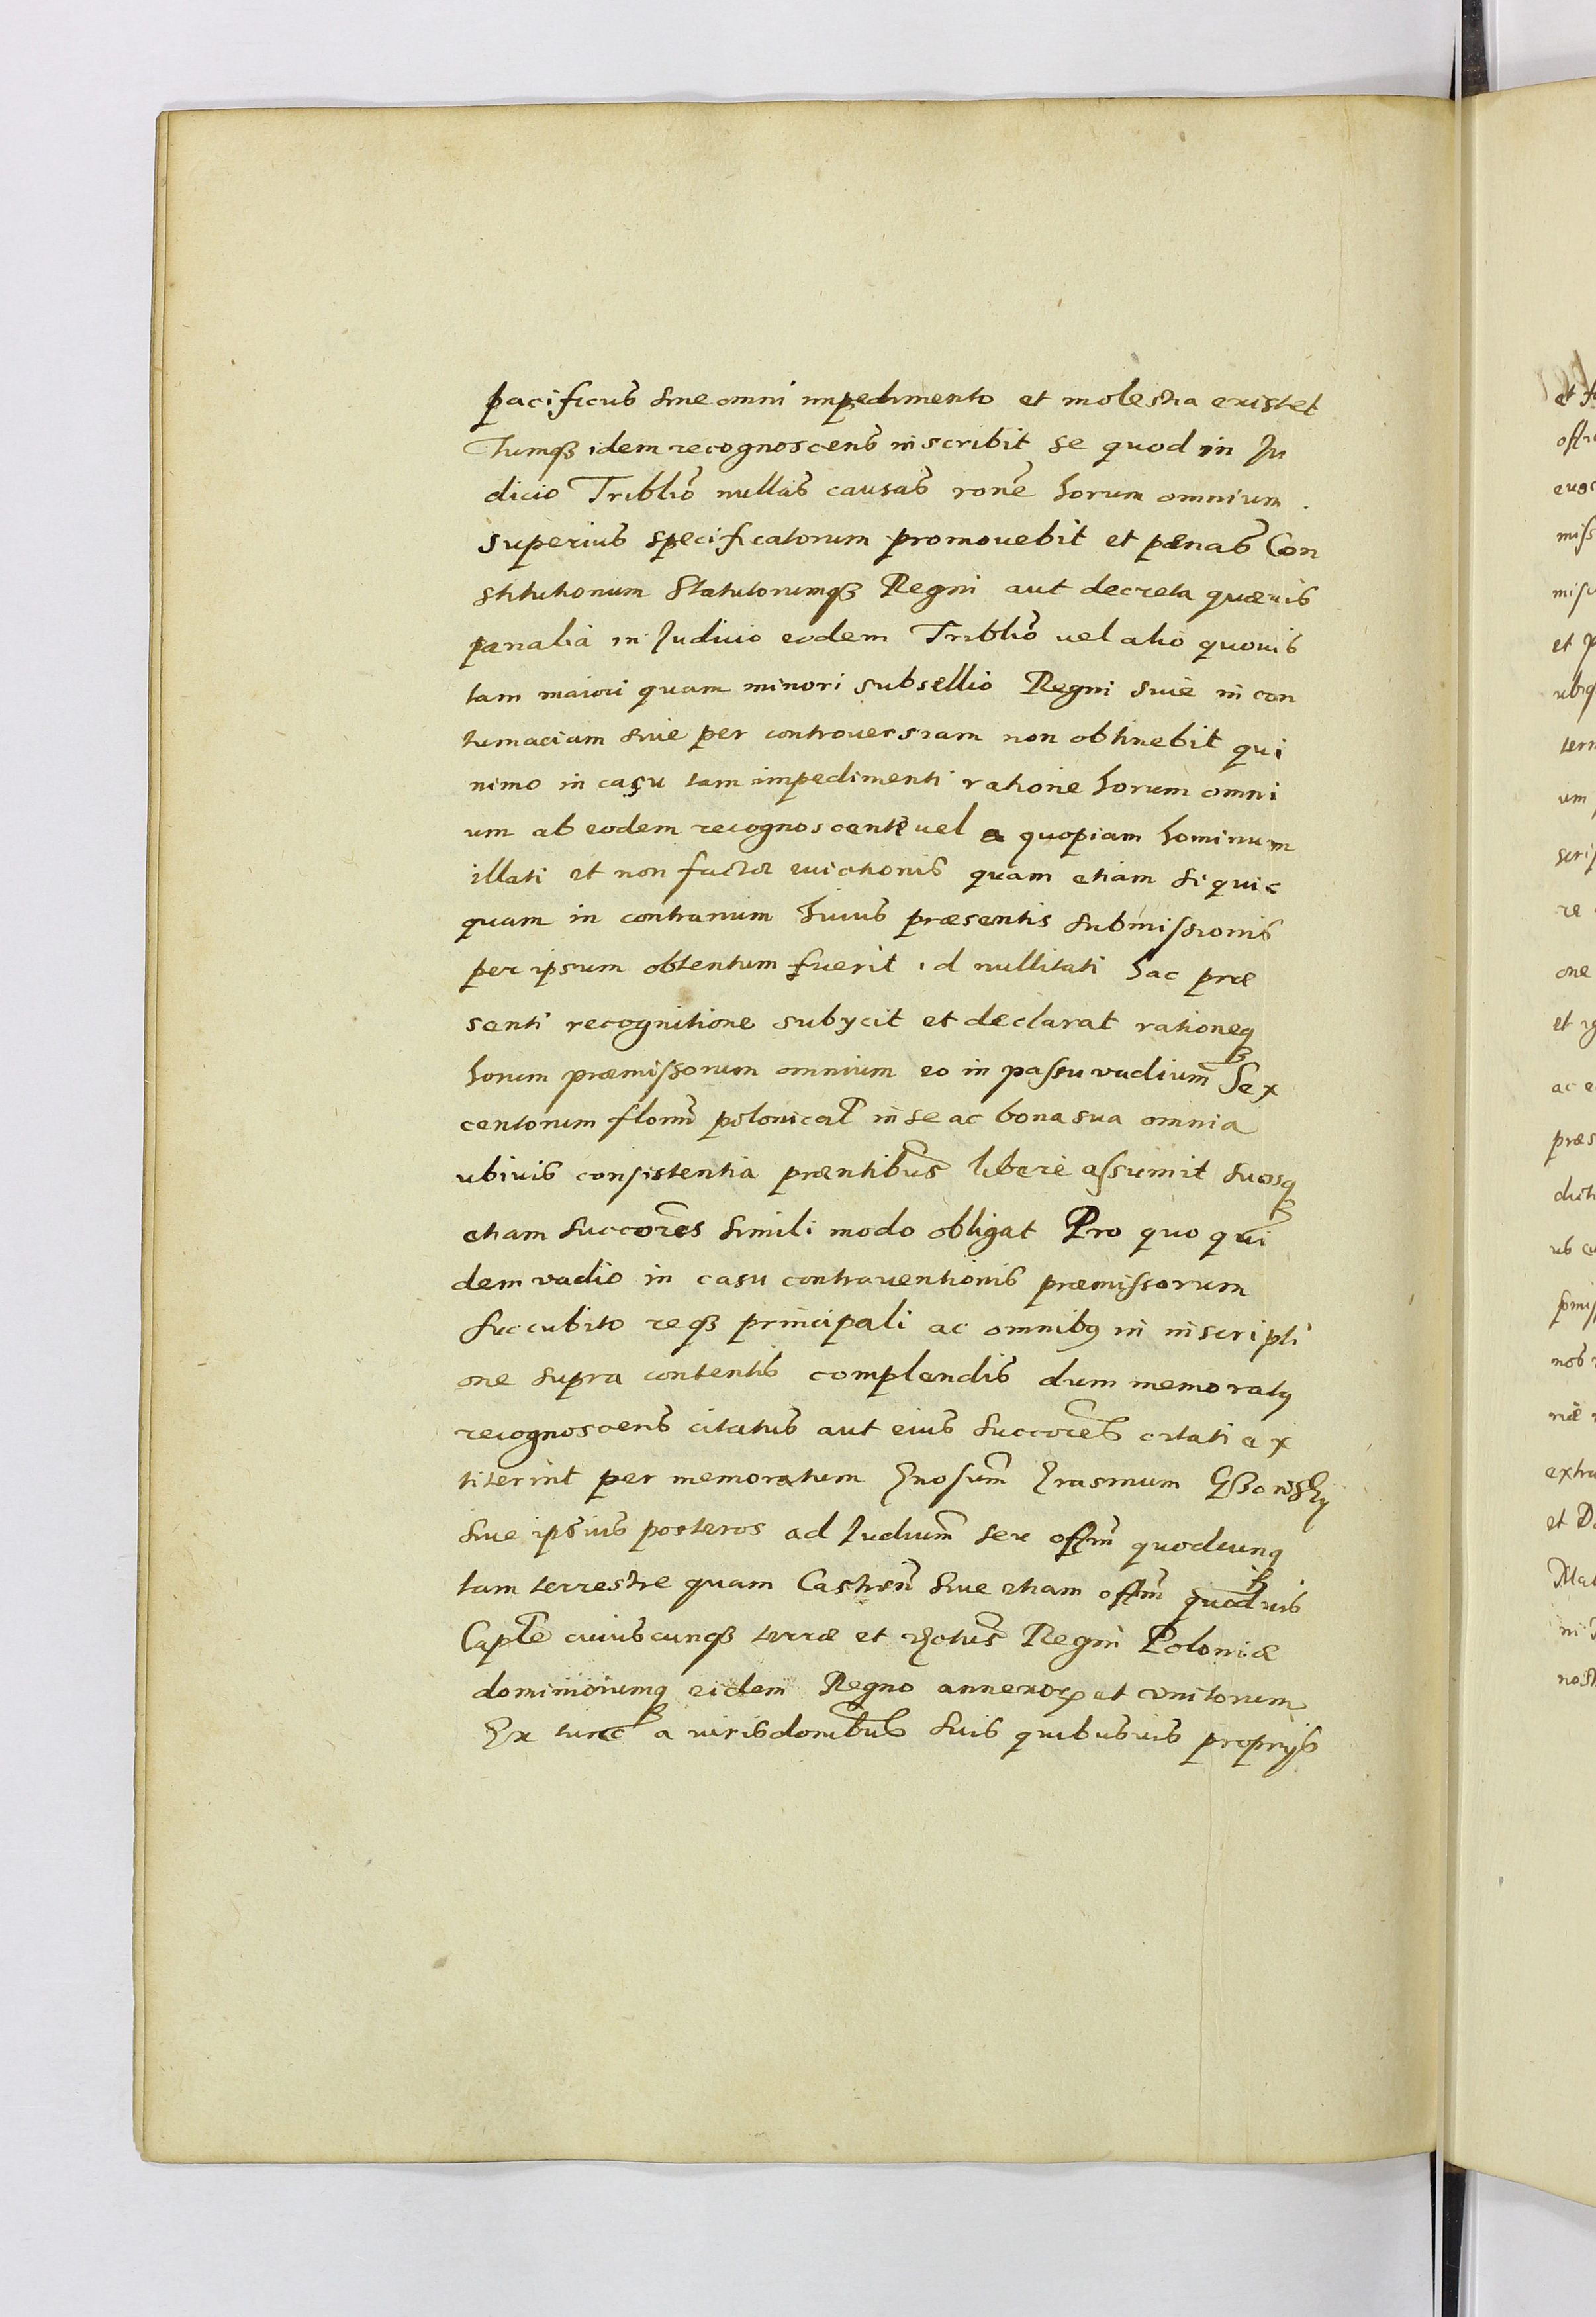 pacificus sine omni impedimento et molestia existet
Tumqꝫ idem recognoscens inscribit se quod in Ju
dicio Triblio nullas causas rone horum omnium
superius specificatorum promovebit et pænas Con
stitutionum Statutorumqꝫ Regni aut decreta quævis
pænalia in Judicio eodem Triblio vel alio quovis
tam maiori quam minori subsellio Regni sive in con
tumaciam sive per controversiam non obtinebit qui
nimo in casu tam impedimenti ratione horum omni
um ab eodem recognoscente vel a quopiam hominum
illati et non factæ evictionis quam etiam si quic
quam in contrarium huius præsentis submissionis
per ipsum obtentum fuerit id nullitati hac præ
senti recognitione subycit et declarat rationeqꝫ
horum præmissorum omnium eo in passu vadium Sex
centorum floren polonical in se ac bona sua omnia
ubivis consistentia præntibus libere assumit suosqꝫ
etiam succores simili modo obligat Pro quo qui
dem vadio in casu contraventionis præmissorum
succubito reqꝫ principali ac omnibꝰ in inscripti
one supra contentis complendis dum memoratꝰ
recognoscens citatus aut eius succores citati ex
titerint per memoratum Gnosum Erasmum
sive ipsius posteros ad Judium seu offm quodcunqꝫ
tam terrestre quam Castren sive etiam offm quodvis
Caple cuiuscunqꝫ terræ et Poloniæ
dominiorumqꝫ eidem Regno annexorꝝ et unitorum
Ex tunc a iurisdonibus suis quibusvis proprijs